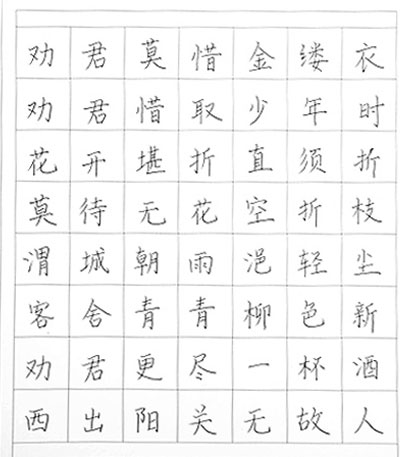 劝君莫惜金缕衣
劝君惜取少年时
花开堪折直须折
莫待无花空折枝
渭城朝雨浥轻尘
客舍青青柳色新
劝君更尽一杯酒
西出阳关无故人